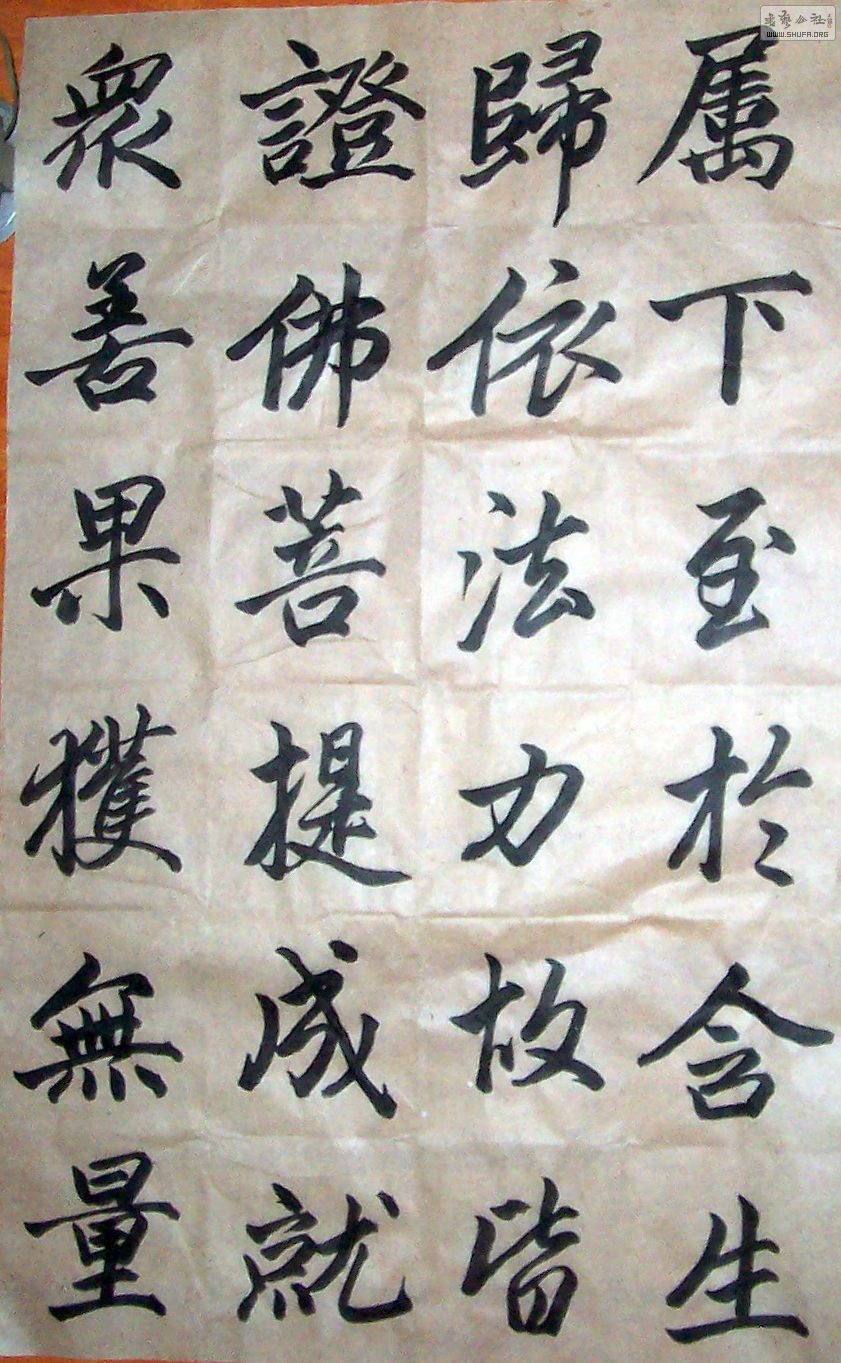 属下至於含生
歸依法力故皆
證佛菩提成就
衆善果獲無量
書藝公社
WWW.SHUFA.ORG